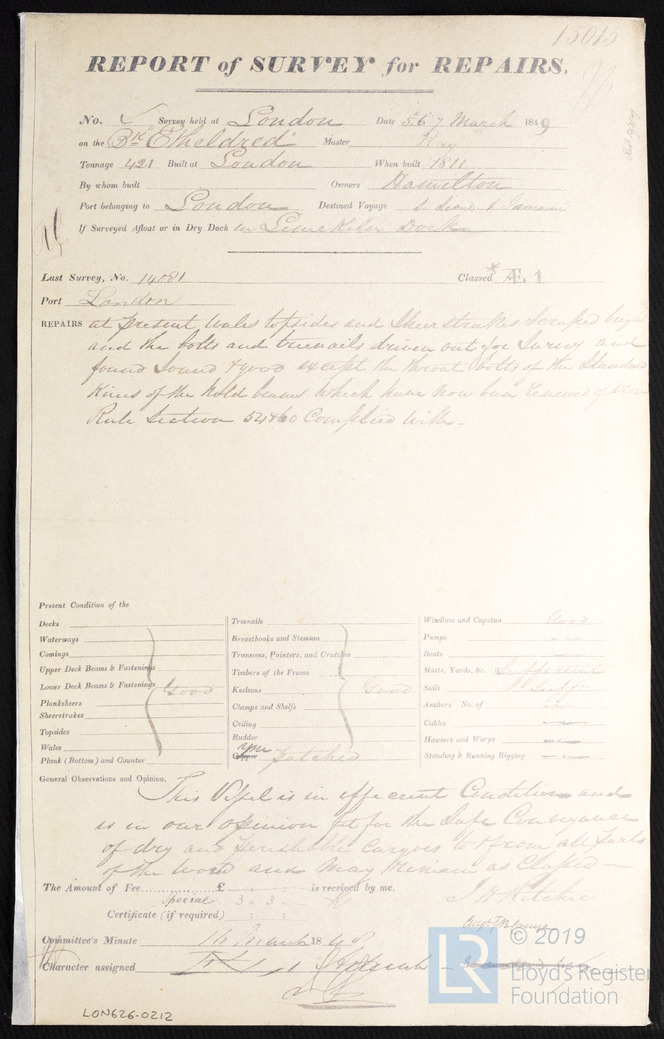 15015
REPORT of SURVEY for REPAIRS.
No. Survey held at London Date 5.6.7 March 1849
on the Bk "Etheldred" Master Ray
Tonnage 421 Built at London When built 1811
By whom built Owners Hamilton
Port belonging to London Destined Voyage
If Surveyed Afloat or in Dry Dock in Lime Kiln Dock
Last Survey, No. 14081 Classed Æ.1
Port London
REPAIRS at present Wales topsides and Sheerstrakes scraped bright
and the bolts and treenails driven out for Survey and
found Sound & good except the throat bolts of the Standard
Knees of the Hold beams which have now been renewed
Rule Section 54 & 60 Complied With -
Present Condition of the
Decks
Waterways
Comings
Upper Deck Beams & Fastenings
Lower Deck Beams & Fastenings Good
Planksheers
Sheerstrakes
Topsides
Wales
Plank (Bottom) and Counter
Treenails
Breasthooks and Stemson
Transoms, Pointers, and Crutches
Timbers of the Frame
Keelsons Good
Clamps and Shelfs
Ceiling
Rudder
Copper Ym patched
Windlass and Capstan Good
Pumps
Boats
Masts, Yards, &c. Sufficient
Sails Suff
Anchors No. of
Cables
Hawsers and Warps
Standing & Running Rigging
General Observations and Opinion,
This Vessel is in efficient Condition and
is in our opinion fit for the Safe Conveyance
of dry and perishable Cargoes to & from all Parts
of the World and May Remain as Classed -
The Amount of Fee £ : : is received by me,
Special 3 : 3 : J H Ritchie
Certificate (if required) : :
Committee's Minute 16 March 1849
Character assigned
LON626-0212
LR
© 2019
Lloyd's Register
Foundation